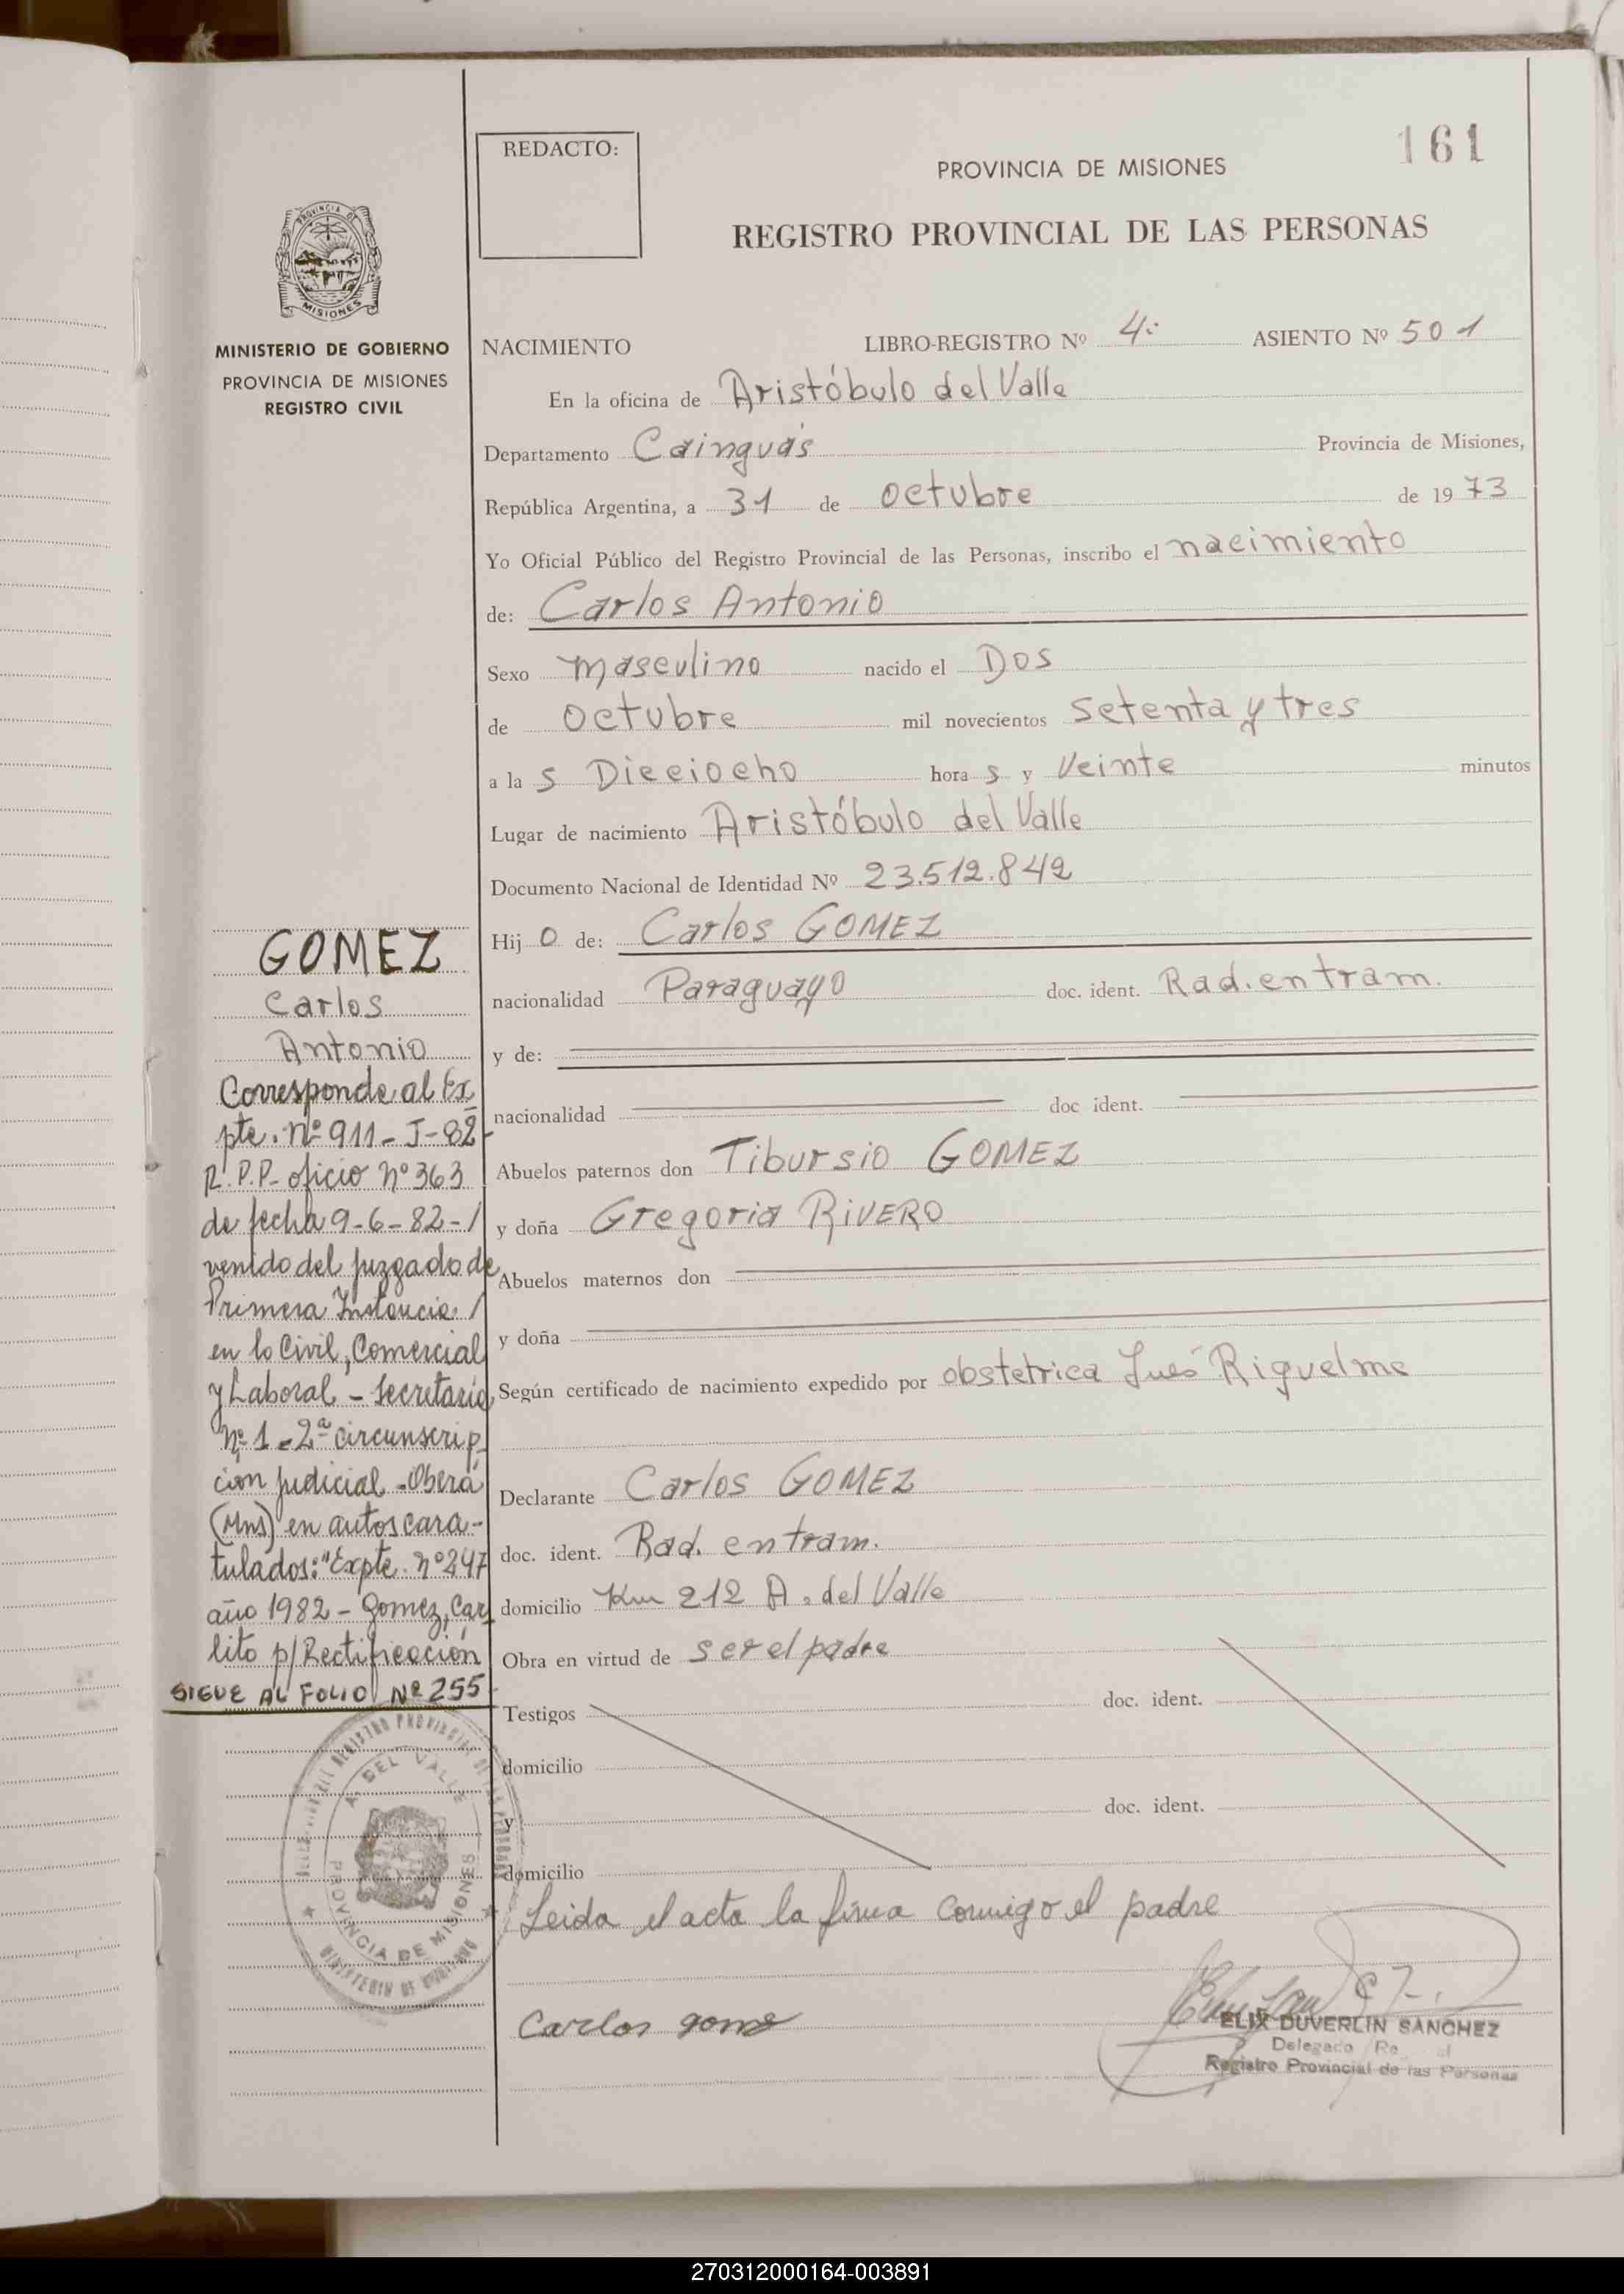 161
REDACTO:
PROVINCIA DE MISIONES
REGISTRO PROVINCIAL DE LAS PERSONAS
PROVINCIA DE
MISIONES
MINISTERIO DE GOBIERNO
PROVINCIA DE MISIONES
REGISTRO CIVIL
NACIMIENTO LIBRO-REGISTRO Nº 4º ASIENTO Nº 501
En la oficina de Aristóbulo del Valle
Departamento Cainguás Provincia de Misiones,
República Argentina, a 31 de octubre de 1973
Yo Oficial Público del Registro Provincial de las Personas, inscribo el nacimiento
de: Carlos Antonio
Sexo masculino nacido el Dos
de octubre mil novecientos setenta y tres
a la s Dieciocho hora s y Veinte minutos
Lugar de nacimiento Aristóbulo del Valle
Documento Nacional de Identidad Nº 23.512.842
Hij o de: Carlos GOMEZ
nacionalidad Paraguayo doc. ident. Rad. en tram.
y de:
nacionalidad doc ident.
Abuelos paternos don Tibursio GOMEZ
y doña Gregoria RIVERO
Abuelos maternos don
y doña
Según certificado de nacimiento expedido por obstetrica Inés Riquelme
Declarante Carlos GOMEZ
doc. ident. Rad. en tram.
domicilio Km 212 A. del Valle
Obra en virtud de ser el padre
Testigos doc. ident.
domicilio
y doc. ident.
domicilio
Leida el acta la firma conmigo el padre
Carlos gome
ELIX DUVERLIN SANCHEZ
Delegado
Registro Provincial de las Personas
GOMEZ
Carlos
Antonio
Corresponde al Ex
pte. nº 911-J-82-
R.P.P. oficio nº 363
de fecha 9-6-82-/
venido del juzgado de
Primera Instancia /
en lo Civil, Comercial
y Laboral - Secretaria
nº 1 - 2ª circunscrip-
ción judicial - Oberá
(Mns) en autos cara-
tulados: "Expte. nº 247
año 1982 - Gomez, Car
lito p/ Rectificación
SIGUE AL FOLIO Nº 255
REGISTRO PROVINCIAL DE LAS PERSONAS
A. DEL VALLE
PROVINCIA DE MISIONES
MINISTERIO DE GOBIERNO
270312000164-003891